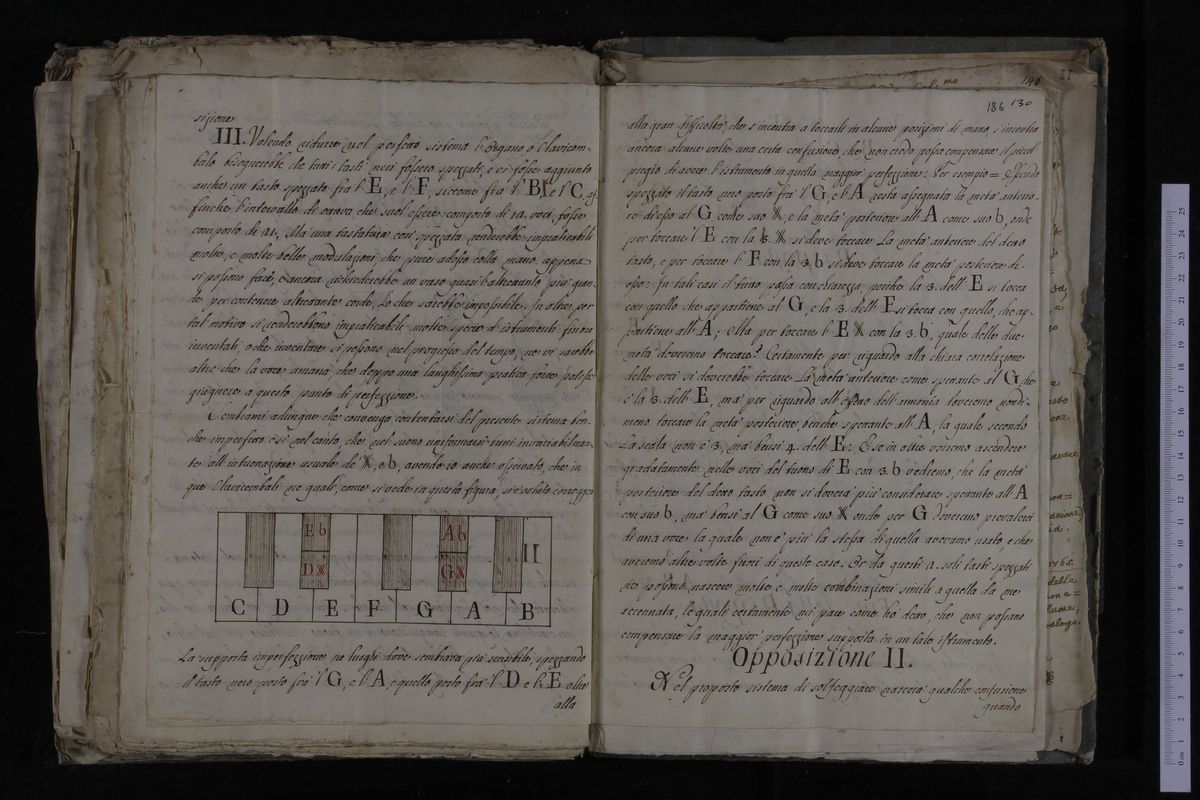 sizione
III. Volendo ridurre nel perfetto sistema l'organo o Clavicem-
balo bisognerebbe che tutti i tasti neri fossero spezzati, e vi fosse aggiunto
anche un tasto spezzato fra l'E, e l'F, siccome fra l'B, e l'C, af-
finche l'intervallo di ottava che suol essere composto di 12. voci, fosse
composto di 21. Ma una tastatura così spezzata renderebbe impraticabili
molte, e molte delle modulazioni, che pure adesso colla mano appena
si possono fare, e ancora richiederebbe un vaso quasi altrettanto più gran-
de per contenere altrettante corde, lo che sarebbe impossibile. In oltre per
tal motivo si renderebbono impraticabili molte specie di istrumenti fin ora
inventati, o che inventare si possono nel progresso del tempo, ne vi sarebbe
altro che la voce umana che doppo una lunghissima pratica forse potesse
giugnere a questo punto di perfezione.
Sembrami adunque che convenga contentarsi del presente sistema ben-
che imperfetto e sì nel canto che nel suono uniformarsi tutti invariabilmen-
te all'intuonazione usuale de' X, e b, avendo io anche osservato, che in
que Clavicembali ne quali, come si vede in questa figura, si è voluto correggere
Eb
DX
Ab
GX
II
C D E F G A B
La supposta imperfezione ne luoghi dove sembrava più sensibile, spezzando
il tasto nero posto fra l'G, e l'A, e quello posto fra l'D e l'E oltre
alla
140
11
186 130
alla gran difficoltà, che s'incontra a toccarli in alcune posizioni di mano, s'incontra
ancora alcune volte una certa confusione, che non credo possa compensare il piccol
pregio di avere l'istrumento in quella maggior perfezione: Per esempio = Essendo
spezzato il tasto nero posto fra l'G e l'A resta assegnata la metà anterio-
re di esso al G come suo X, e la metà posteriore all'A come suo b, onde
per toccare l'E con la 3. X si deve toccare la metà anteriore del detto
tasto, e per toccare l'F con la 3. b si deve toccare la metà posteriore di
esso: In tali casi il tutto passa con chiarezza, poiche la 3. dell'E si tocca
con quello che appartiene al G, e la 3. dell'F si tocca con quello, che ap-
partiene all'A; Ma per toccare l'E X con la 3. b, quale delle due
metà dovremo toccare? Certamente per riguardo alla chiara correlazione
delle voci si dovrebbe toccare la metà anteriore come spettante al G che
è la 3. dell'E, ma per riguardo all'effetto dell'armonia dovremo nondi-
meno toccare la metà posteriore benche spettante all'A, la quale secondo
la scala non è 3, ma bensì 4. dell'E: E se in oltre vorremo ascendere
gradatamente nelle voci del tuono di E con 3. b vedremo, che la metà
posteriore del detto tasto non si dovrà più considerare spettante all'A
con suo b, ma bensì al G come suo X onde per G dovremo prevalerci
di una voce la quale non è più la stessa di quella avevamo usato, e che
useremo altre volte fuori di questo caso. Or da questi 2. soli tasti spezzati
ne possono nascere molte e molte combinazioni simili a quella da me
accennata, le quali certamente mi pare come ho detto, che non possano
compensare la maggior perfezione supposta in un tale istrumento.
Opposizione II.
Nel proposto sistema di solfeggiare nascerà qualche confusione
quando